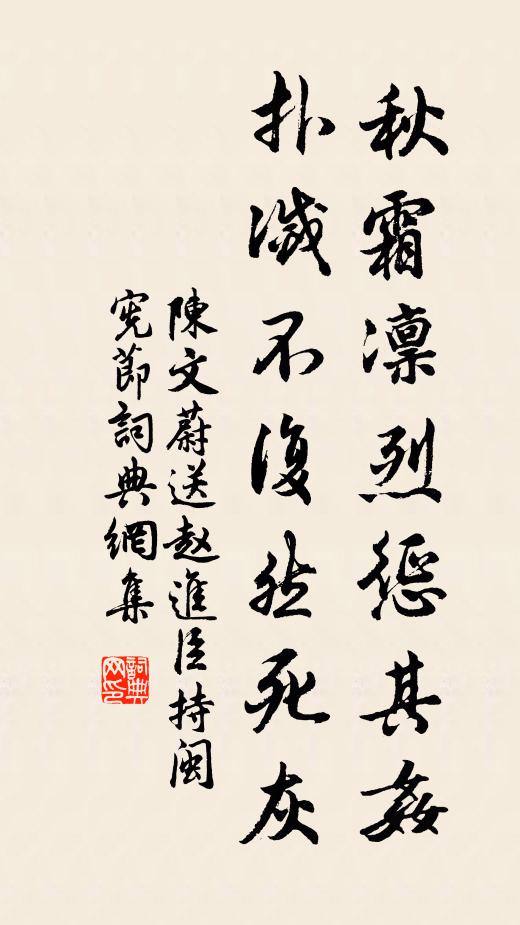 秋霜凛烈惩其姦
扑滅不復然死灰
陳文蔚送赵進臣持閩
宪節詞典網集
詞典网印